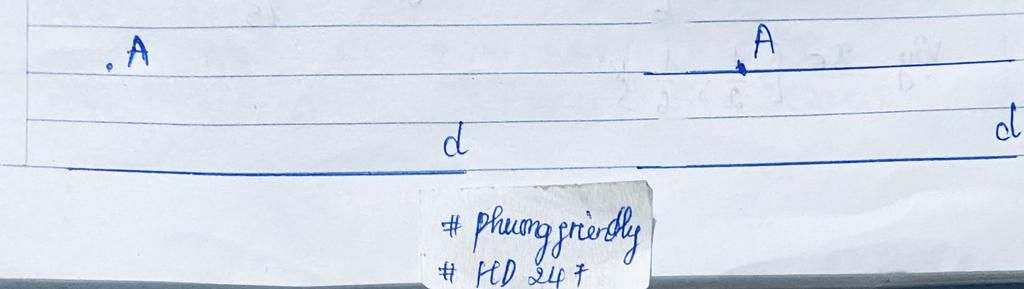 A
A
d
d
# phuong friendly
# HD 247